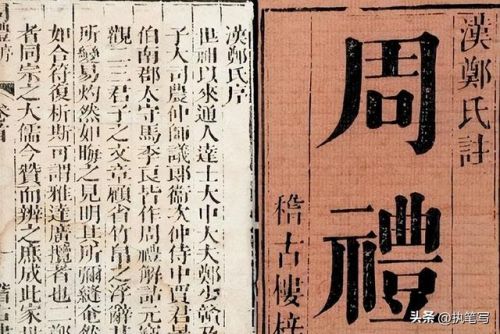 漢鄭氏註
周禮
稽古樓梓
漢鄭氏序
世祖以來通人達士大中大夫鄭少贛及
子大司農仲師議郎衞次仲侍中賈君景
伯南郡太守馬季長皆作周禮解詁元竊
觀二三君子之文章顧省竹帛之浮辭其
所變易灼然如晦之見明其所彌縫奄然
如合符復析斯可謂雅達廣攬者也二鄭
者同宗之大儒今贊而辨之庶成此家
周禮序
卷首
头条 @执笔写